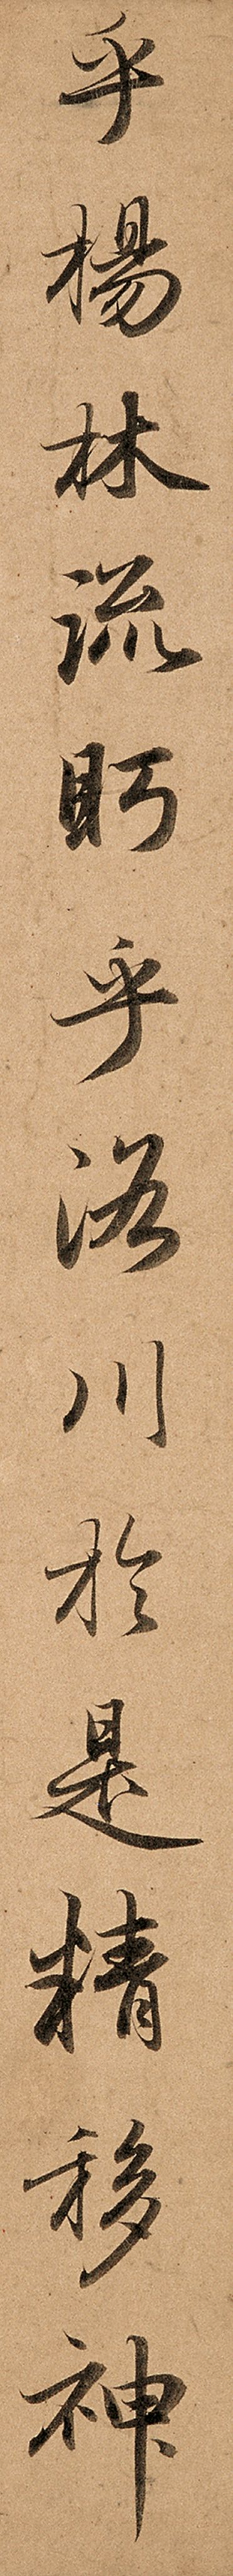 乎楊林流眄乎洛川於是精移神